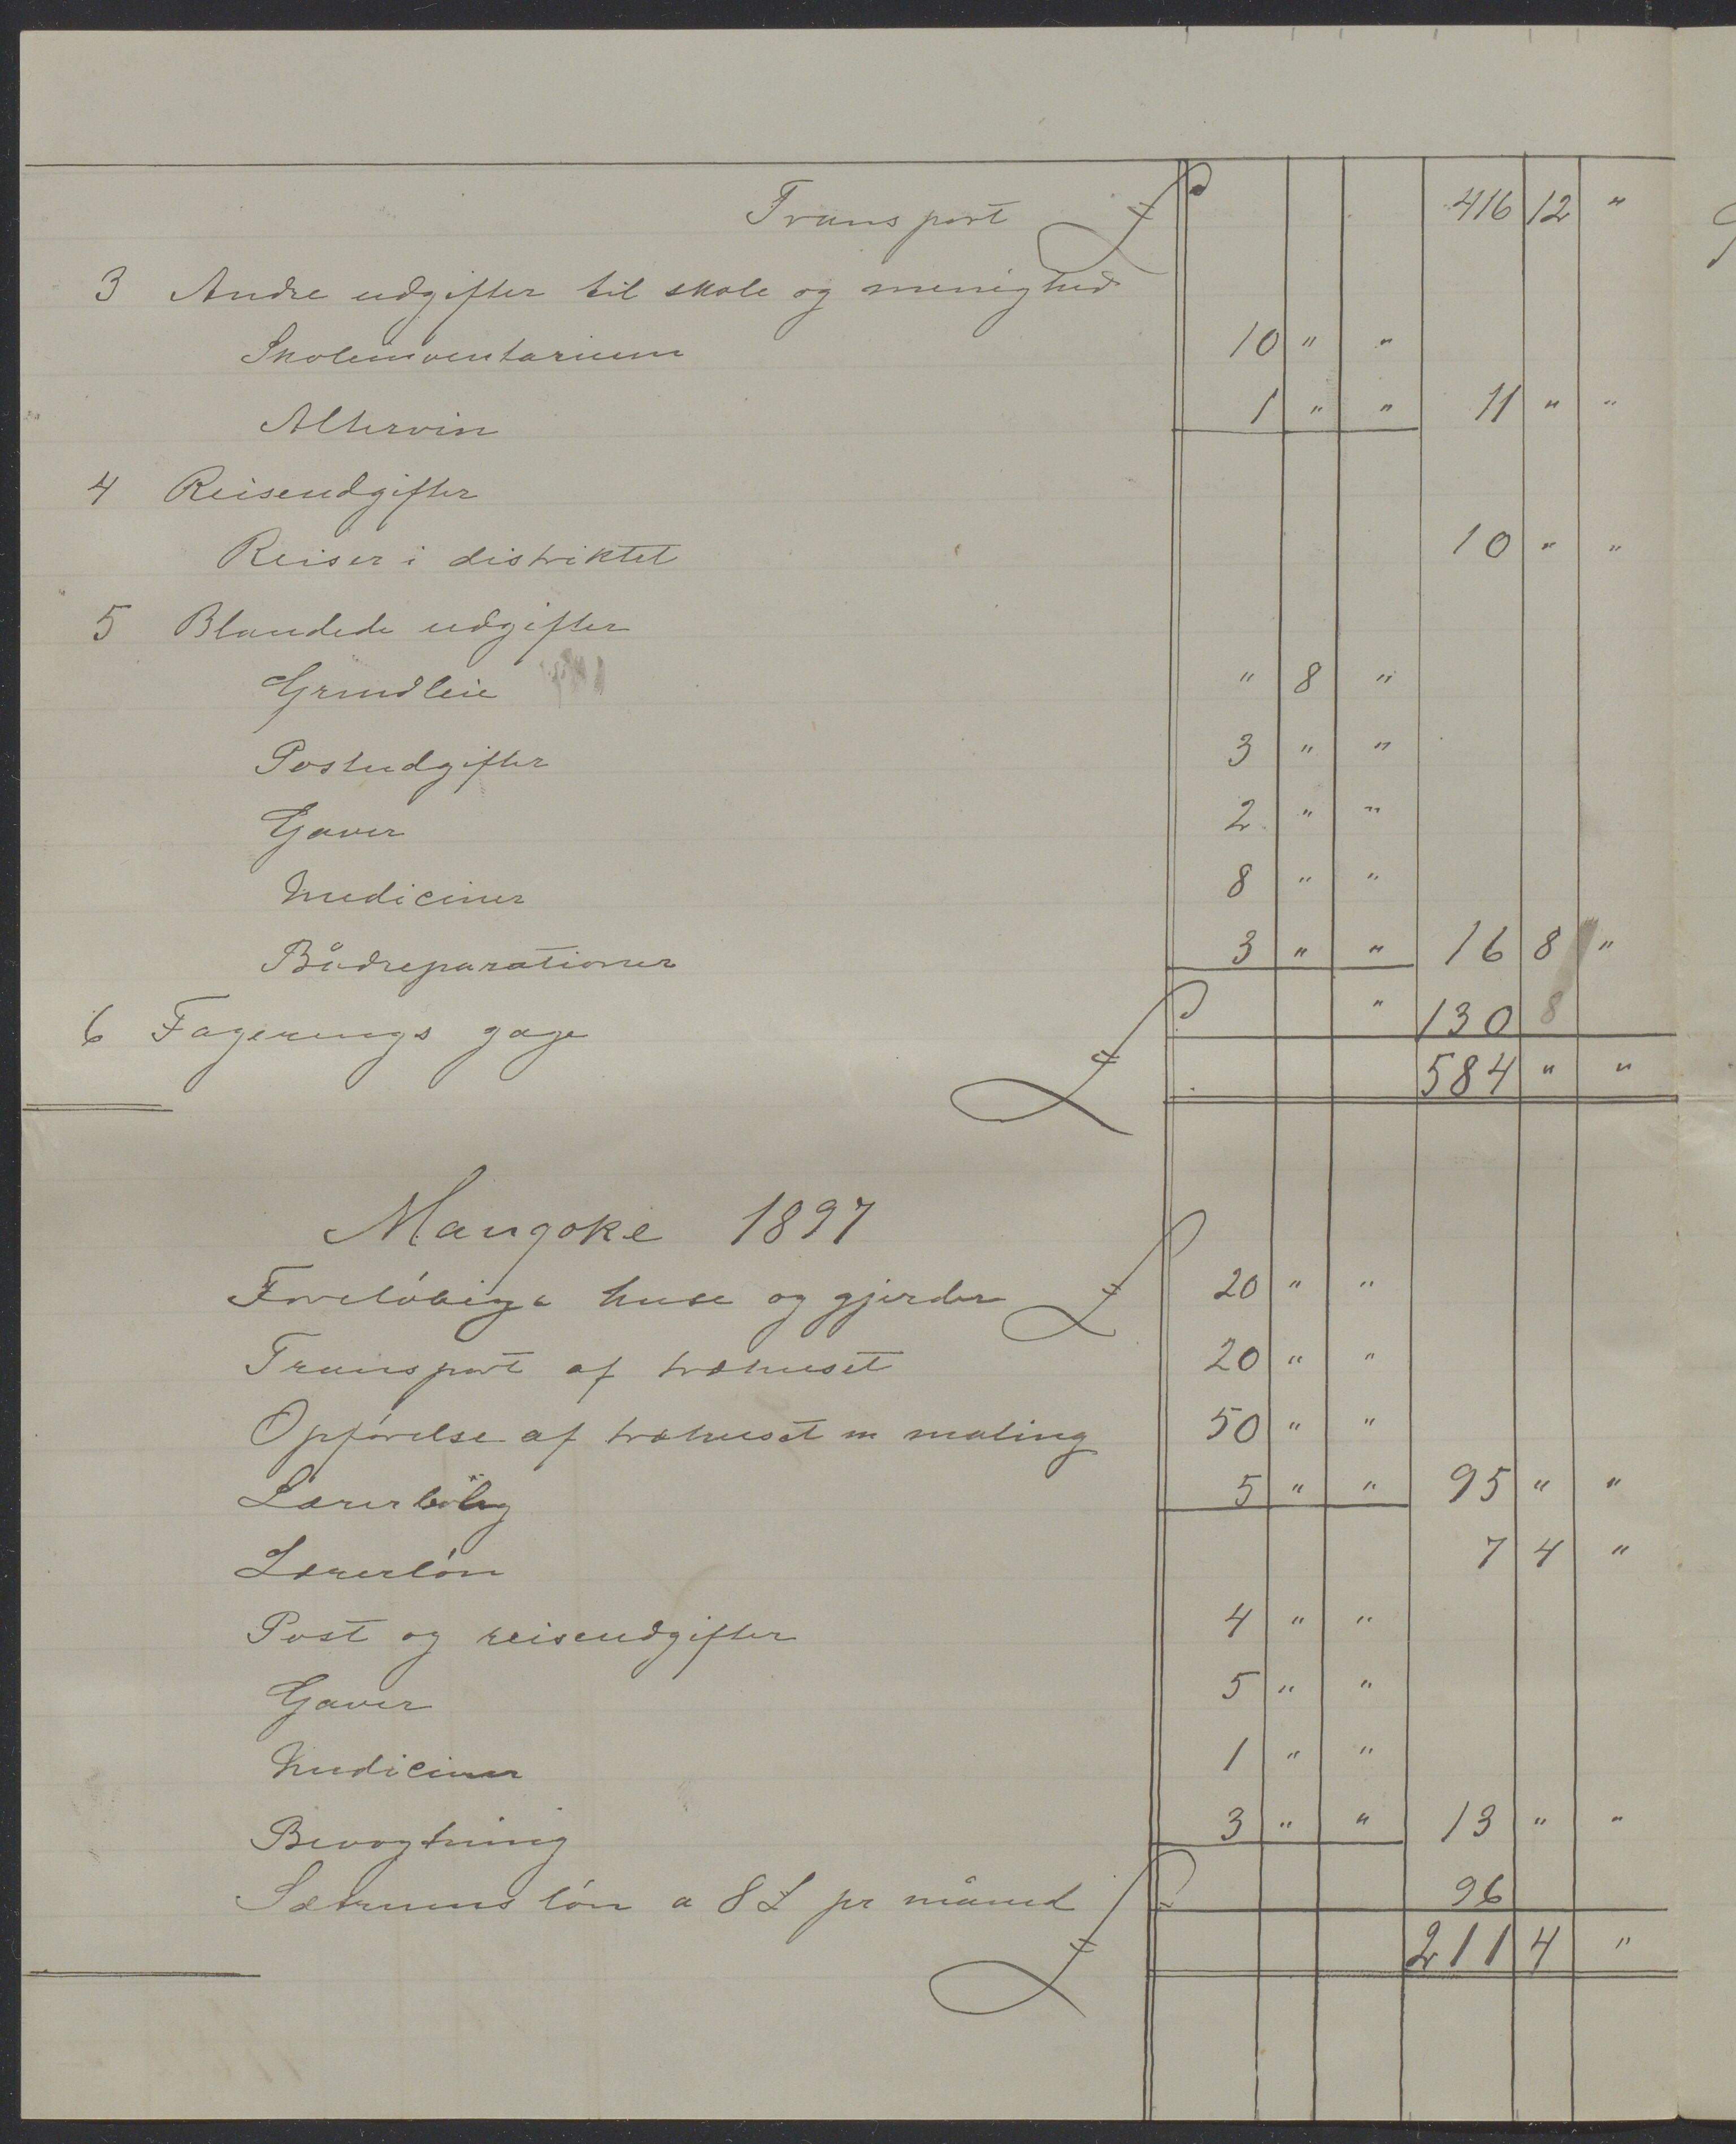 Transport £ 416 12 "
3 Andre udgifter til skole og menighed
Skoleinventarium 10 " "
Altervin 1 " " 11 " "
4 Reiseudgifter
Reiser i distriktet 10 " "
5 Blandede udgifter
Grundleie " 8 "
Postudgifter 3 " "
Gaver 2 " "
Mediciner 8 " "
Bådreparationer 3 " " 16 8 "
6 Fagerengs gage " 130 8
£ 584 " "
Mangoke 1897
Foreløbige huse og gjerder £ 20 " "
Transport af træhuset 20 " "
Opførelse af træhuset m maling 50 " "
Lærerbolig 5 " " 95 " "
Lærerløn 7 4 "
Post og reiseudgifter 4 " "
Gaver 5 " "
Mediciner 1 " "
Bevogtning 3 " " 13 " "
Sætrums løn a 8 £ pr måned 96
£ 211 4 "